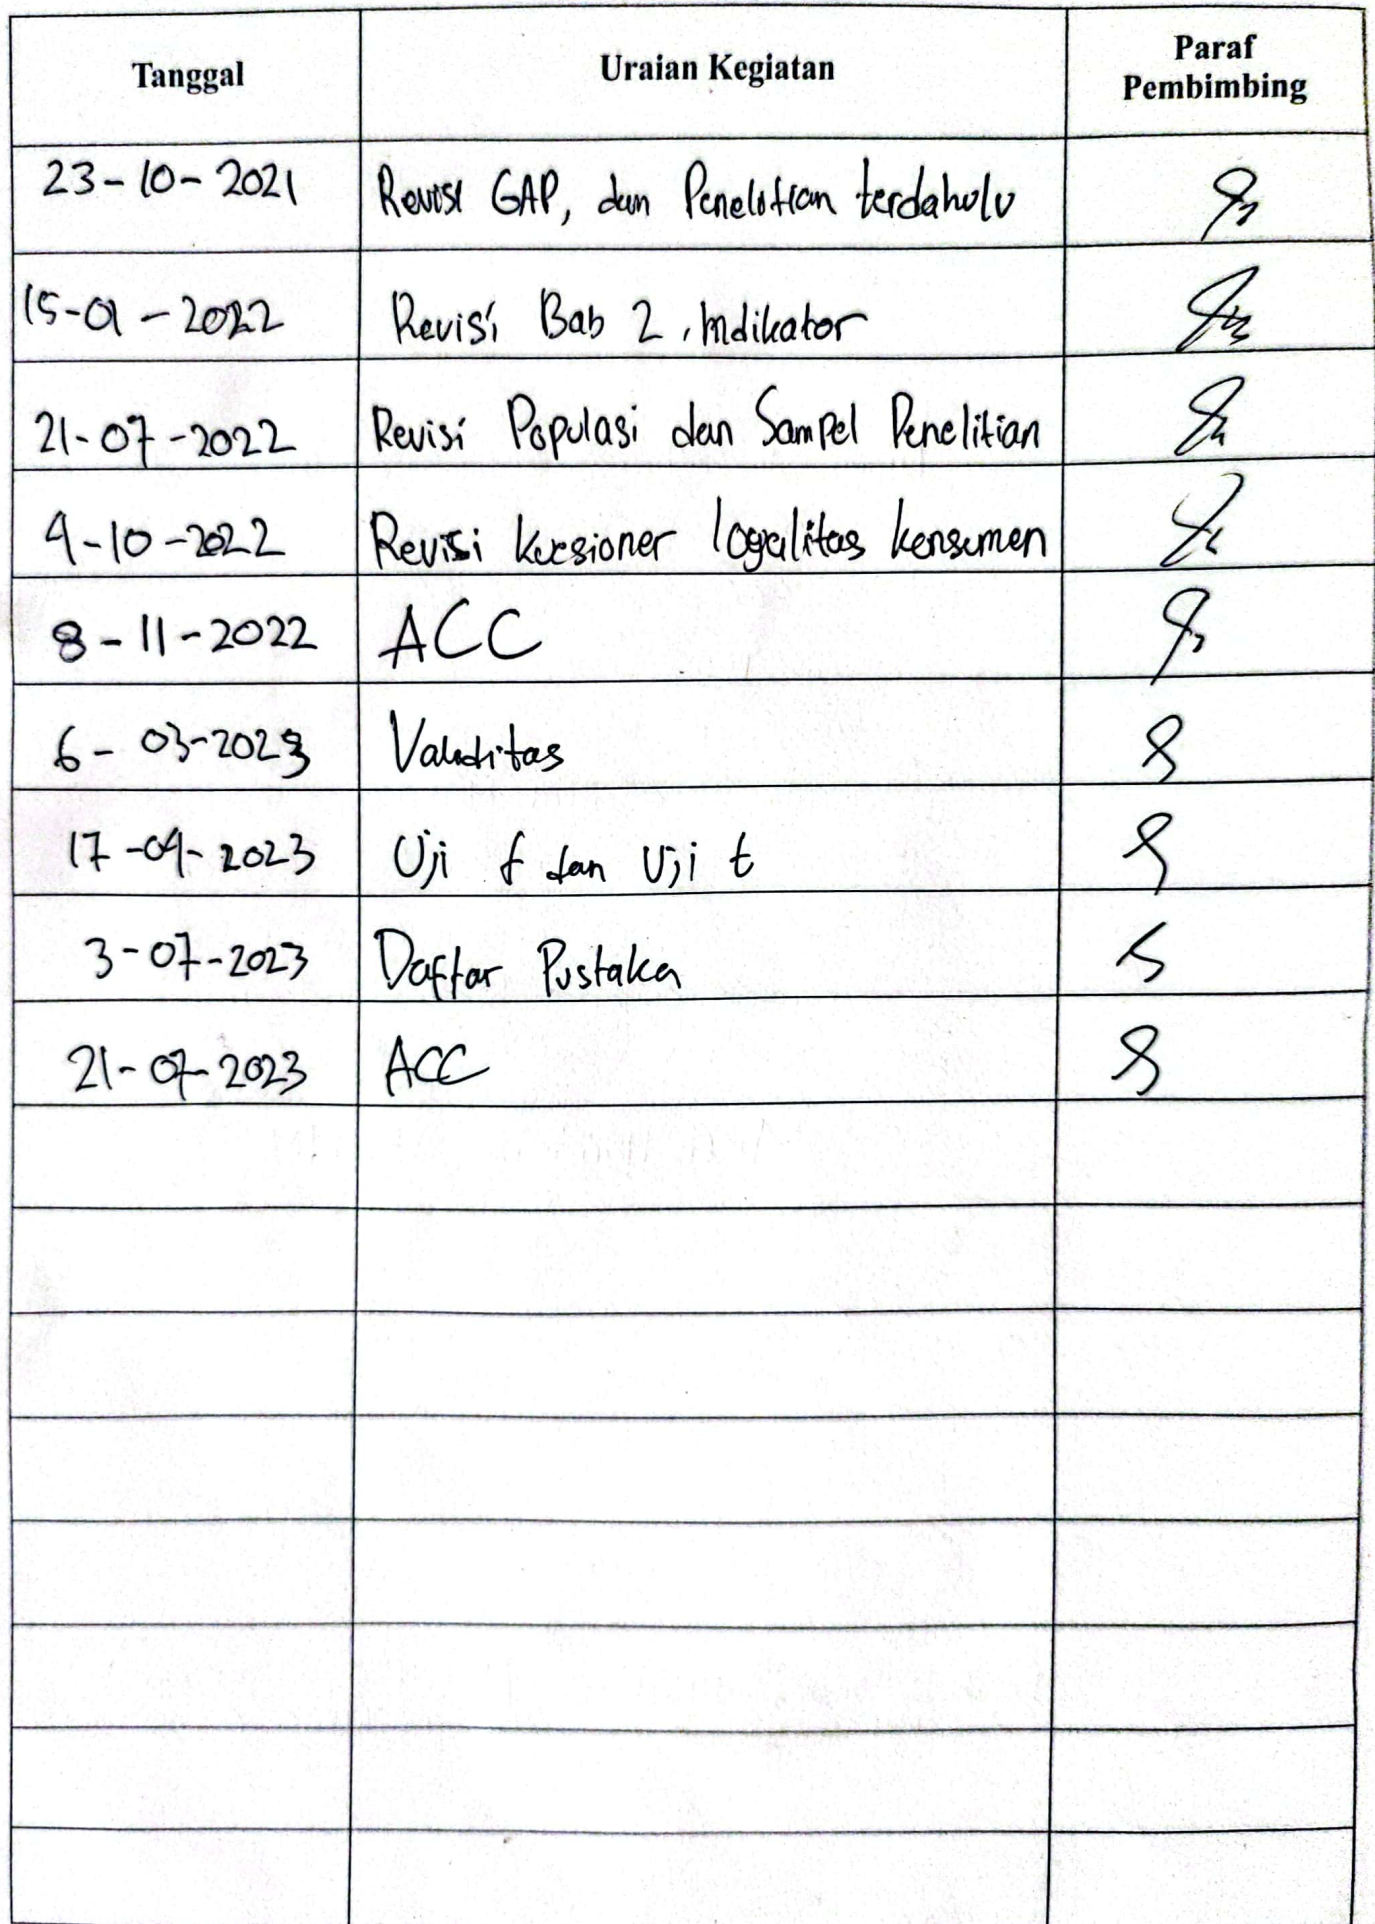 Tanggal Uraian Kegiatan Paraf
Pembimbing
23-10-2021 Revisi GAP, dan Penelitian terdahulu
15-01-2022 Revisi Bab 2, Indikator
21-07-2022 Revisi Populasi dan Sampel Penelitian
4-10-2022 Revisi kuesioner loyalitas konsumen
8-11-2022 ACC
6-03-2023 Validitas
17-04-2023 Uji f dan Uji t
3-07-2023 Daftar Pustaka
21-07-2023 ACC